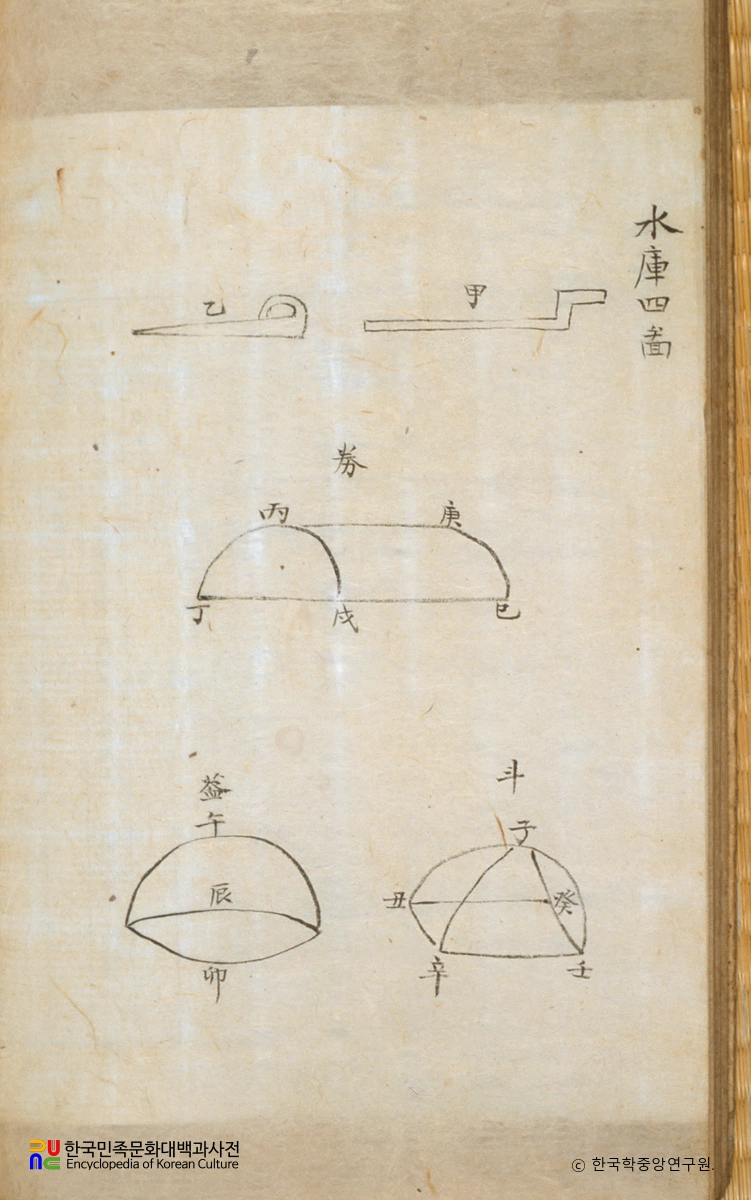 水庫四啚
甲
乙
券
丙
庚
丁
戊
巳
斗
子
丑
癸
辛
壬
葢
午
辰
卯
한국민족문화대백과사전
Encyclopedia of Korean Culture
ⓒ 한국학중앙연구원.